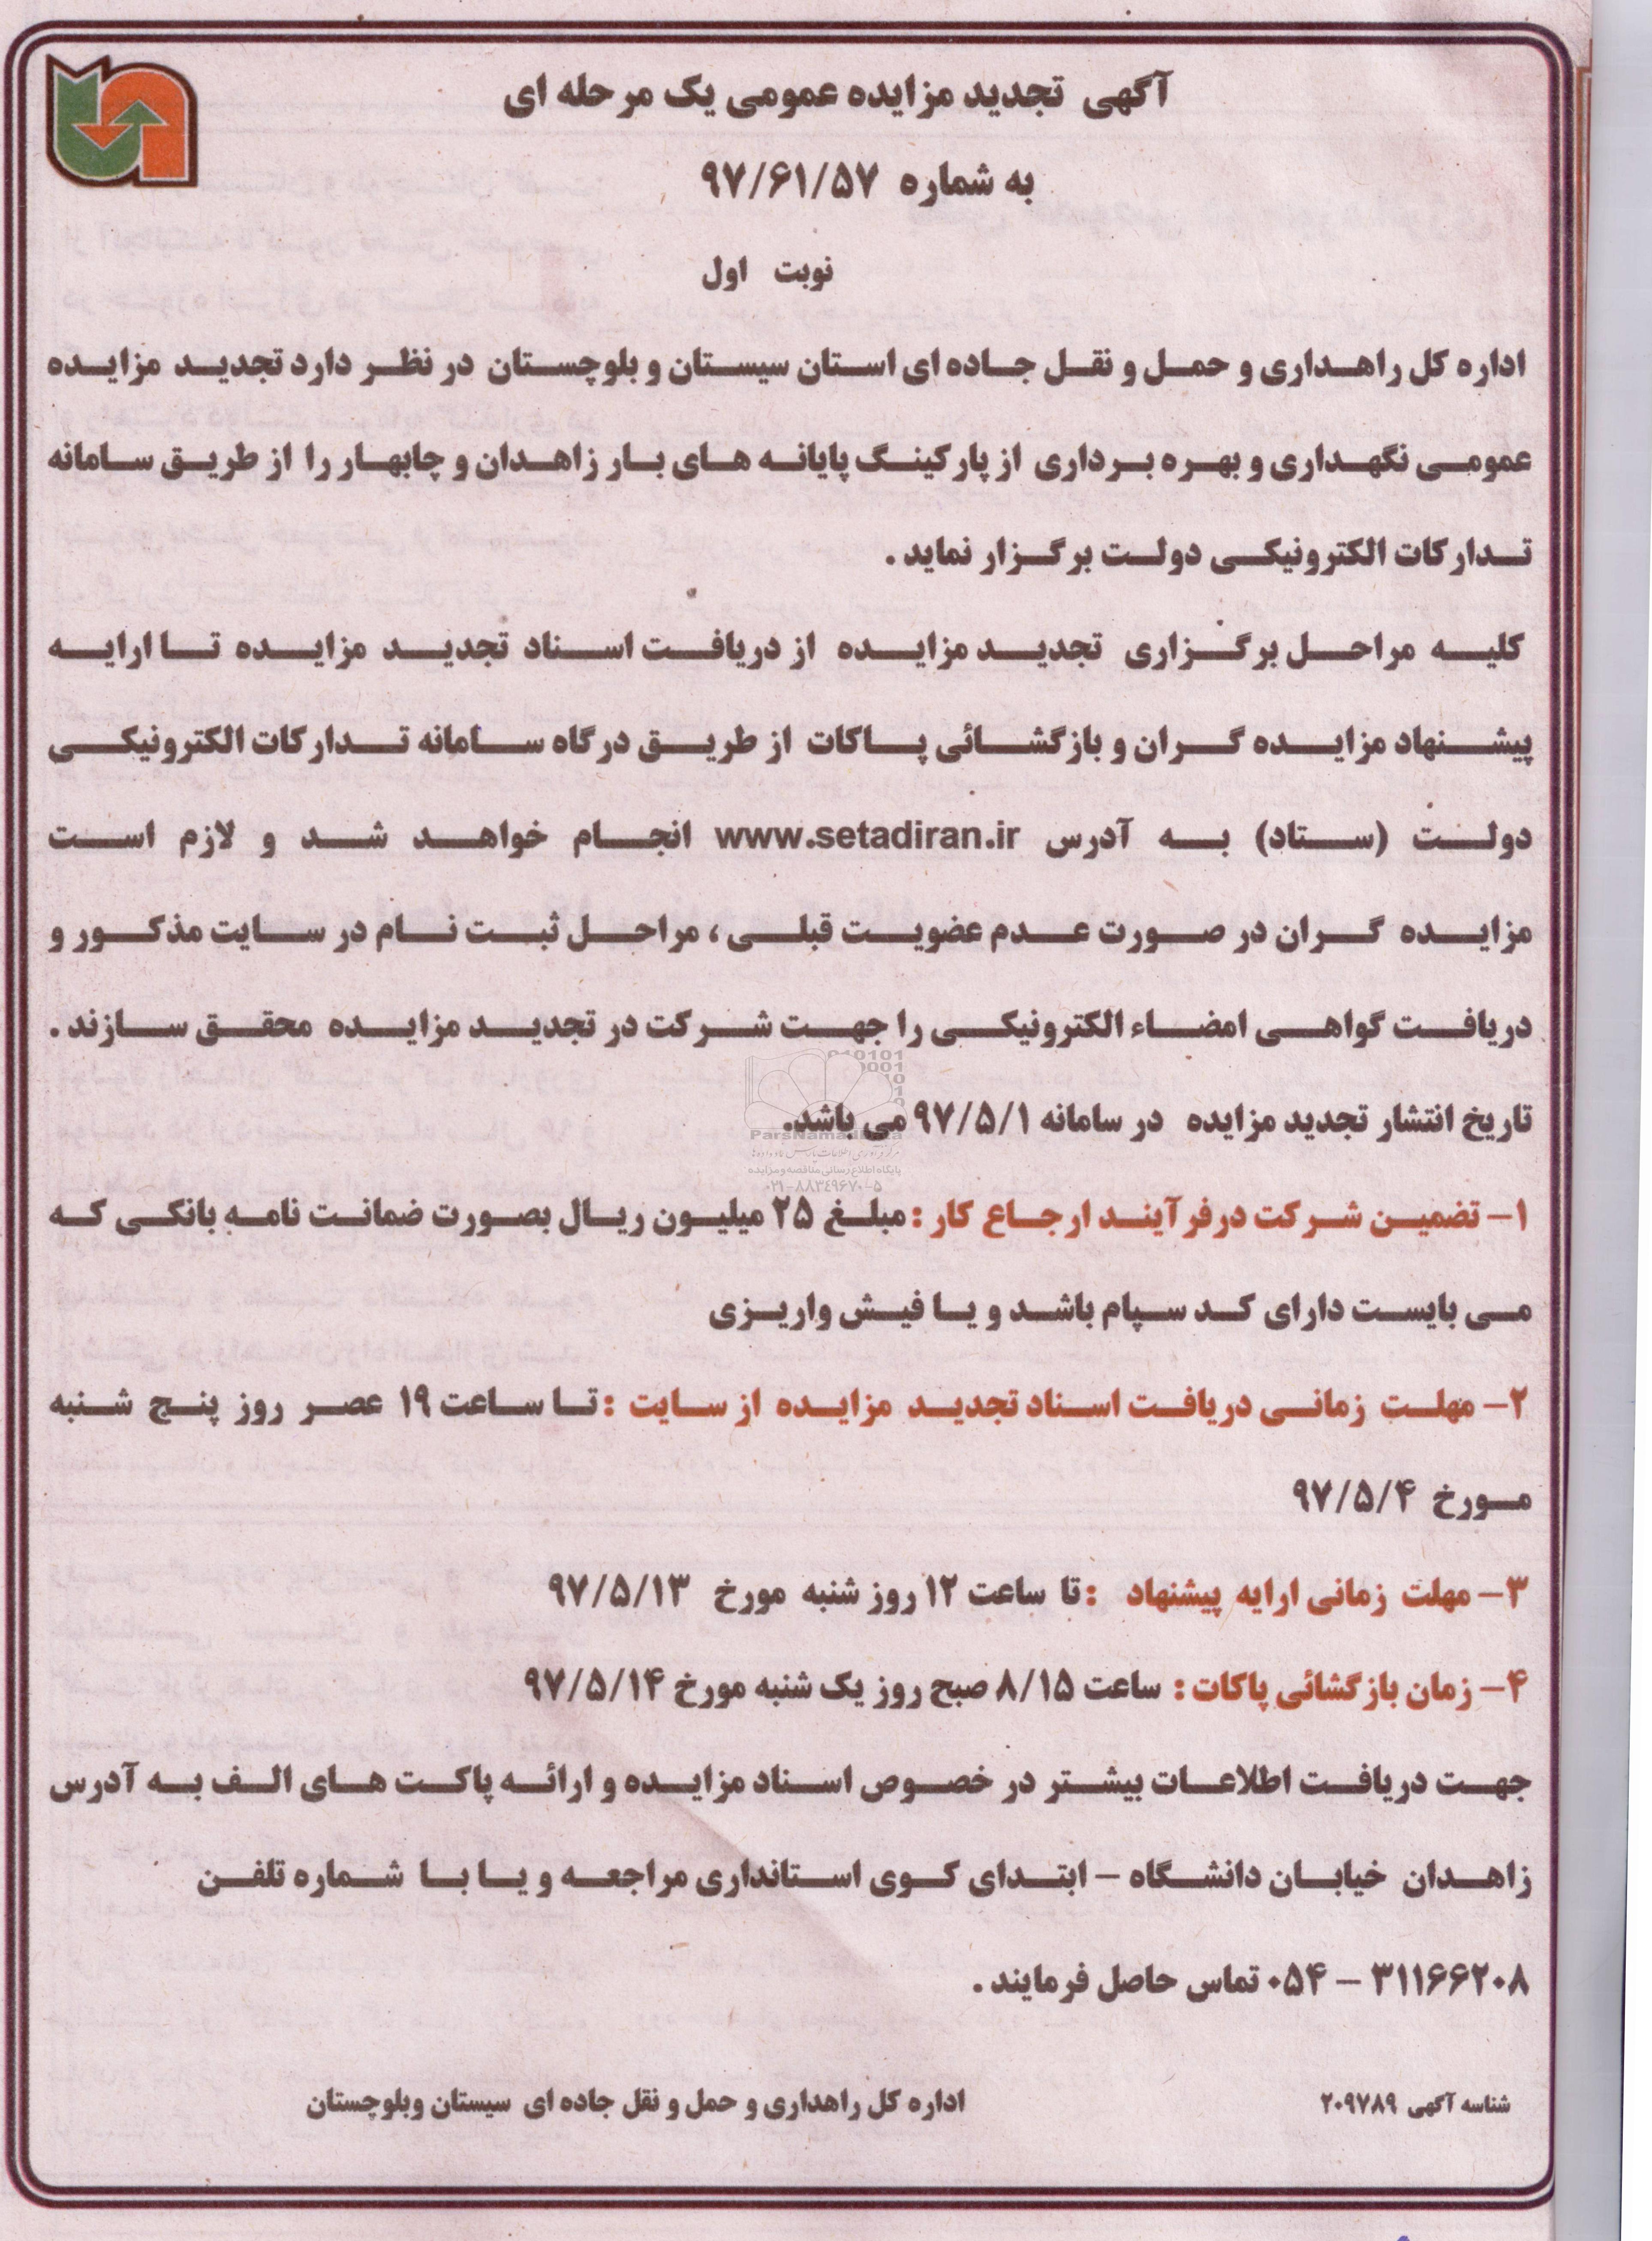 آگهی تجدید مزایده عمومی یک مرحله ای
به شماره ۹۷/۶۱/۵۷
نوبت اول
اداره کل راهداری و حمل و نقل جاده ای استان سیستان و بلوچستان در نظر دارد تجدید مزایده
عمومی نگهداری و بهره برداری از پارکینگ پایانه های بار زاهدان و چابهار را از طریق سامانه
تدارکات الکترونیکی دولت برگزار نماید .
کلیه مراحل برگزاری تجدید مزایده از دریافت اسناد تجدید مزایده تا ارایه
پیشنهاد مزایده گران و بازگشائی پاکات از طریق درگاه سامانه تدارکات الکترونیکی
دولت (ستاد) به آدرس www.setadiran.ir انجام خواهد شد و لازم است
مزایده گران در صورت عدم عضویت قبلی ، مراحل ثبت نام در سایت مذکور و
دریافت گواهی امضاء الکترونیکی را جهت شرکت در تجدید مزایده محقق سازند .
تاریخ انتشار تجدید مزایده در سامانه ۹۷/۵/۱ می باشد.
ParsNamadData
پایگاه اطلاع رسانی مناقصه و مزایده
۰۲۱-۸۸۳۴۹۶۷۰-۵
۱- تضمین شرکت درفرآیند ارجاع کار : مبلغ ۲۵ میلیون ریال بصورت ضمانت نامه بانکی که
می بایست دارای کد سپام باشد و یا فیش واریزی
۲- مهلت زمانی دریافت اسناد تجدید مزایده از سایت : تا ساعت ۱۹ عصر روز پنج شنبه
مورخ ۹۷/۵/۴
۳- مهلت زمانی ارایه پیشنهاد : تا ساعت ۱۲ روز شنبه مورخ ۹۷/۵/۱۳
۴- زمان بازگشائی پاکات : ساعت ۸/۱۵ صبح روز یک شنبه مورخ ۹۷/۵/۱۴
جهت دریافت اطلاعات بیشتر در خصوص اسناد مزایده و ارائه پاکت های الف به آدرس
زاهدان خیابان دانشگاه – ابتدای کوی استانداری مراجعه و یا با شماره تلفن
۳۱۱۶۶۲۰۸ – ۰۵۴ تماس حاصل فرمایند .
شناسه آگهی ۲۰۹۷۸۹
اداره کل راهداری و حمل و نقل جاده ای سیستان وبلوچستان